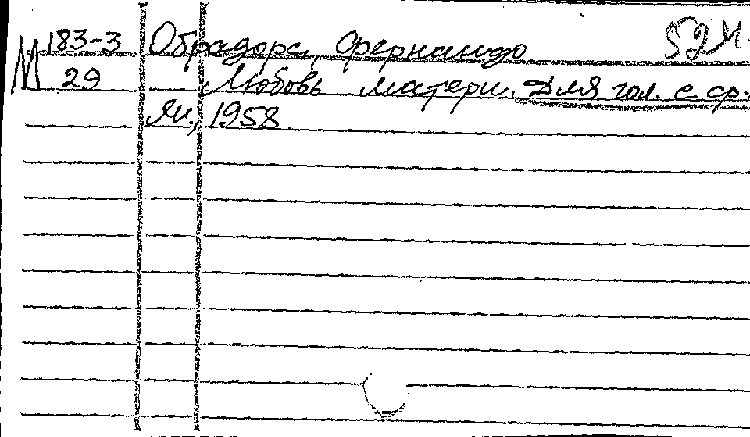 М 183-3 Обрадорс, Фернандо 524
29 Любовь матери. Для гол. с ср.
М., 1958